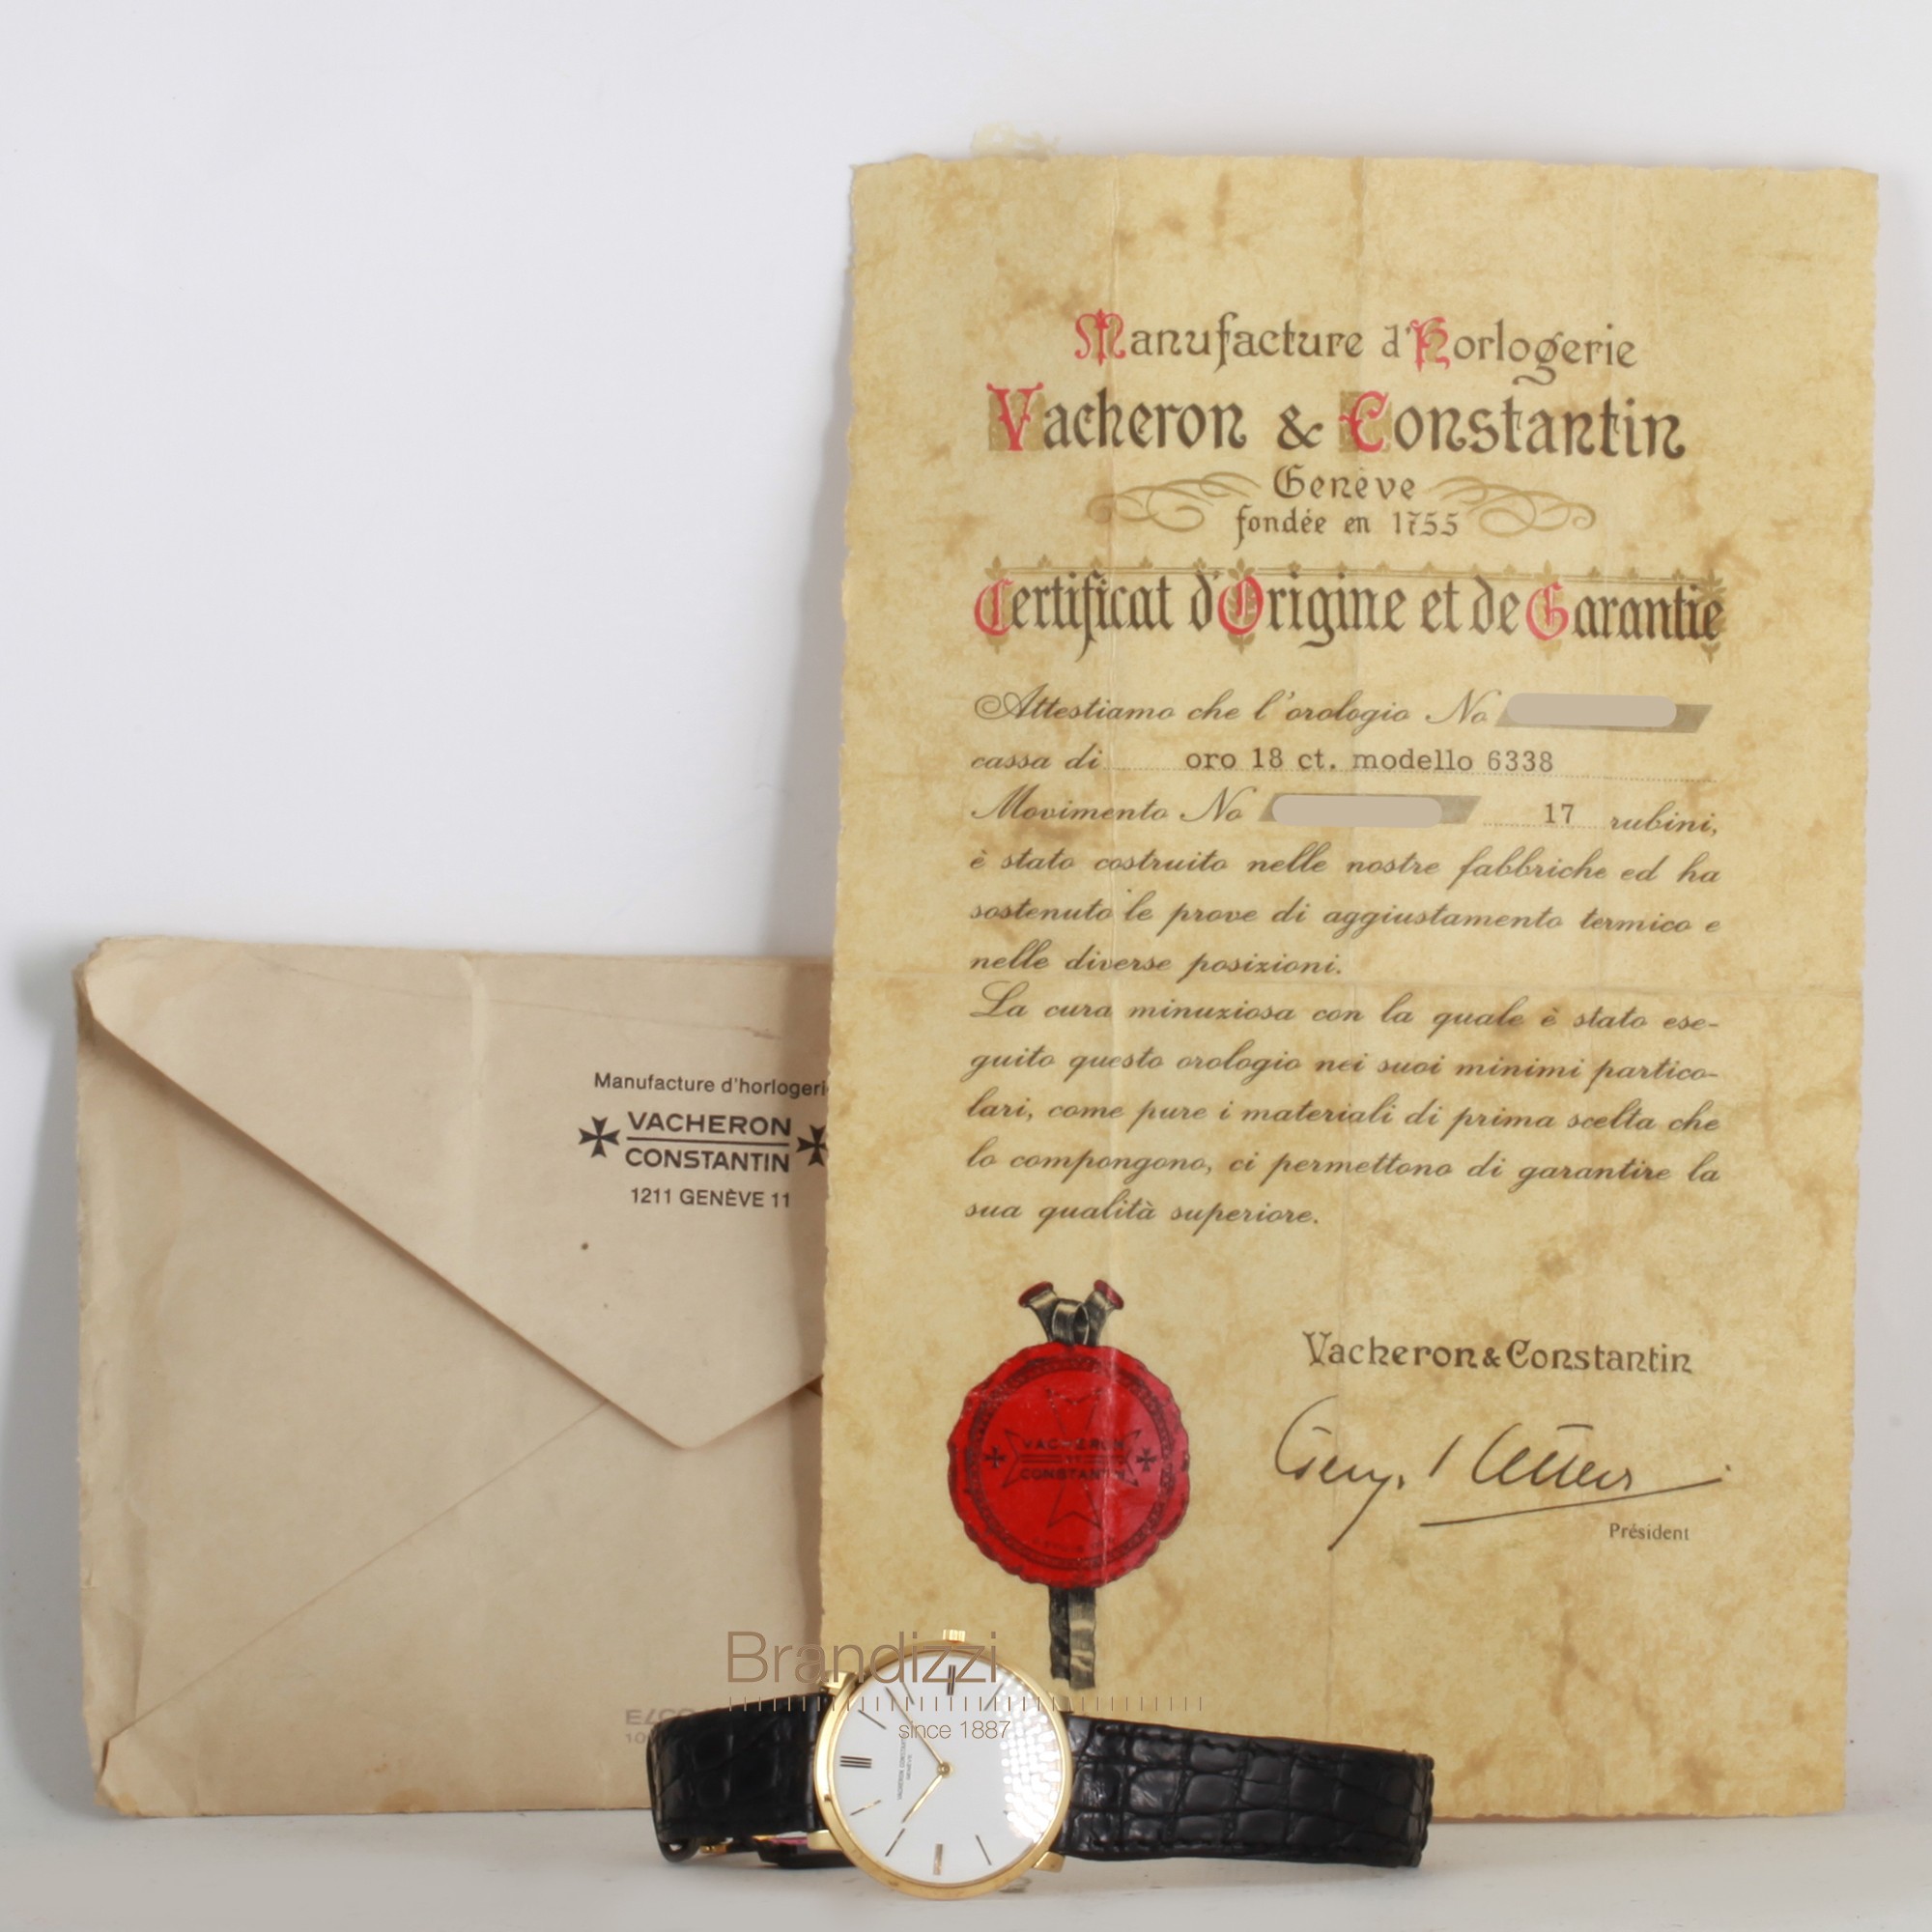 Manufacture d'Horlogerie
Vacheron & Constantin
Genève
fondée en 1755
Certificat d'Origine et de Garantie
Attestiamo che l'orologio No
cassa di oro 18 ct. modello 6338
Movimento No 17 rubini,
è stato costruito nelle nostre fabbriche ed ha
sostenuto le prove di aggiustamento termico e
nelle diverse posizioni.
La cura minuziosa con la quale è stato ese-
guito questo orologio nei suoi minimi partico-
lari, come pure i materiali di prima scelta che
lo compongono, ci permettono di garantire la
sua qualità superiore.
Vacheron & Constantin
Président
VACHERON
ET
CONSTANTIN
Manufacture d'horlogeri
VACHERON
CONSTANTIN
1211 GENÈVE 11
Brandizzi
since 1887
VACHERON CONSTANTIN
GENÈVE